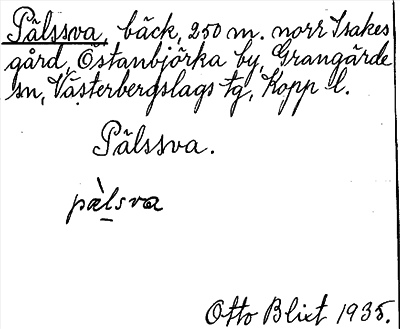 Pälssva, bäck, 250 m. norr Isakes
gård, Östanbjörka by, Grangärde
sn, Västerbergslags tg, Kopp. l.
Pälssva.
pæ̀lsva
Otto Blixt 1935.